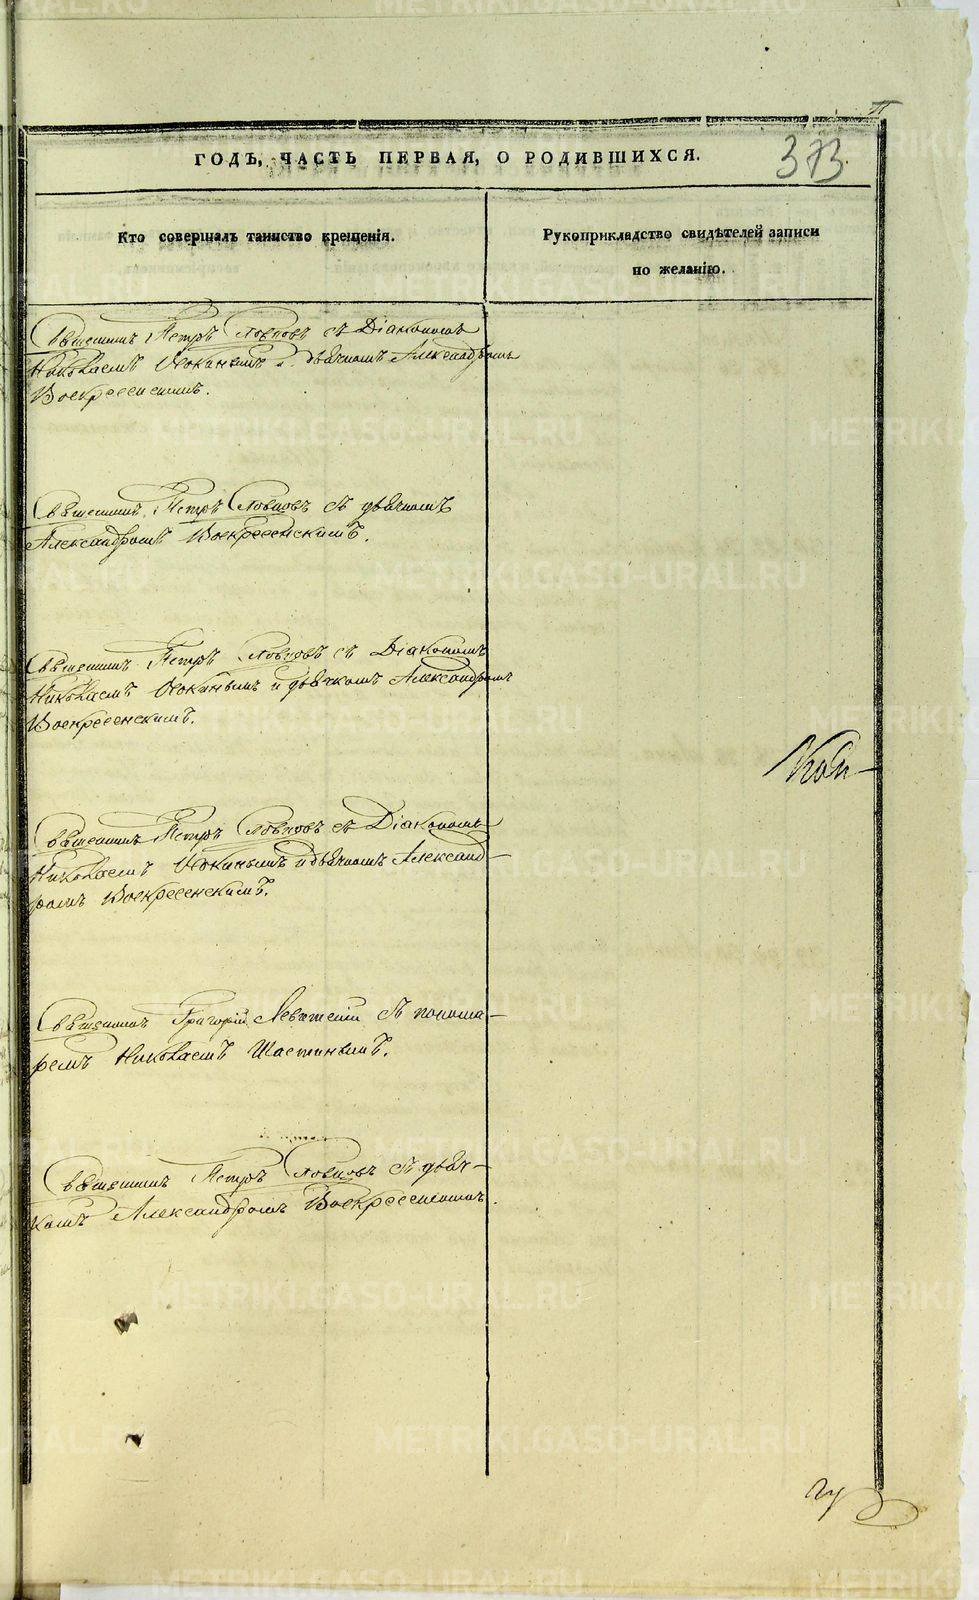 373
ГОДЪ, ЧАСТЬ ПЕРВАЯ, О РОДИВШИХСЯ.
Кто совершалъ таинство крещенія.
Рукоприкладство свидѣтелей записи
по желанію.
Священникъ Петръ Словцовъ съ Діакономъ
Николаемъ и дьячкомъ Александромъ
Воскресенскимъ.
Священникъ Петръ Словцовъ съ дьячкомъ
Александромъ Воскресенскимъ.
Священникъ Петръ Словцовъ съ Діакономъ
Николаемъ и дьячкомъ Александромъ
Воскресенскимъ.
Священникъ Петръ Словцовъ съ Діакономъ
Николаемъ и дьячкомъ Александ-
ромъ Воскресенскимъ.
Священникъ Григорій Левитскій съ понома-
ремъ Николаемъ
Священникъ Петръ Словцовъ съ дьяч-
комъ Александромъ Воскресенскимъ.
METRIKI.GASO-URAL.RU